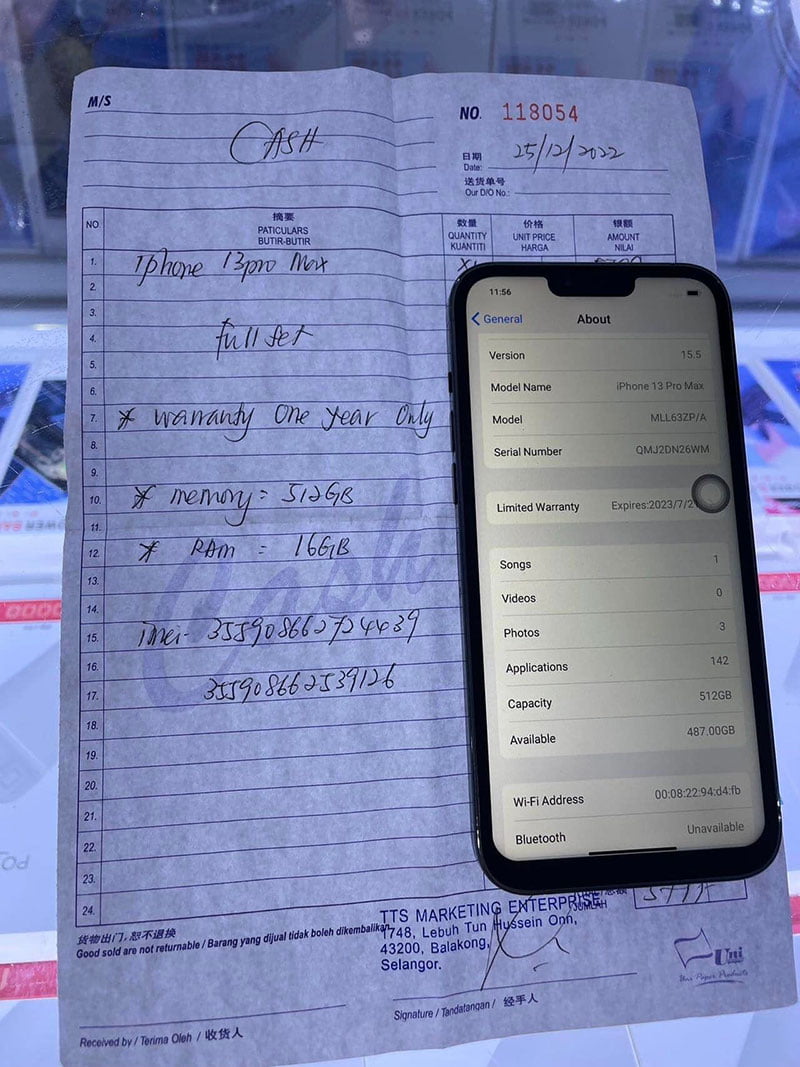 M/S
NO. 118054
CASH
日期
Date: 25/12/2022
送货单号
Our D/O No.:
NO
摘要
PATICULARS
BUTIR-BUTIR
数量
QUANTITY
KUANTITI
价格
UNIT PRICE
HARGA
银额
AMOUNT
NILAI
1. Iphone 13pro Max X1
2.
3.
4. full set
5.
6.
7. * warranty One year Only
8.
9.
10. * memory = 512GB
11.
12. * RAM = 16GB
13.
14.
15. imei- 355908662724439
16.
17. 355908662539126
18.
19.
20.
21.
22.
23.
24.
Cash
11:56
General
About
Version 15.5
Model Name iPhone 13 Pro Max
Model MLL63ZP/A
Serial Number QMJ2DN26WM
Limited Warranty Expires:2023/7/2
Songs 1
Videos 0
Photos 3
Applications 142
Capacity 512GB
Available 487.00GB
Wi-Fi Address 00:08:22:94:d4:fb
Bluetooth Unavailable
货物出门,恕不退换
Good sold are not returnable / Barang yang dijual tidak boleh dikembalikan
JUMLAH
TTS MARKETING ENTERPRISE
1748, Lebuh Tun Hussein Onn,
43200, Balakong,
Selangor.
Uni
Uni Paper Products
Received by / Terima Oleh / 收货人
Signature / Tandatangan / 经手人